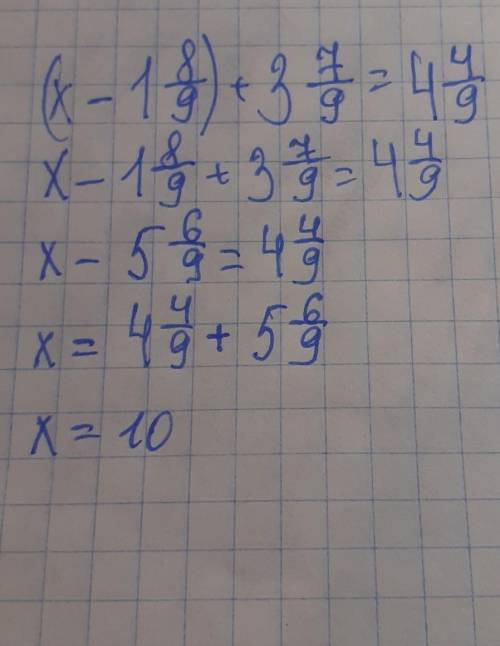 (x - 1 8/9) + 3 7/9 = 4 4/9
x - 1 8/9 + 3 7/9 = 4 4/9
x - 5 6/9 = 4 4/9
x = 4 4/9 + 5 6/9
x = 10